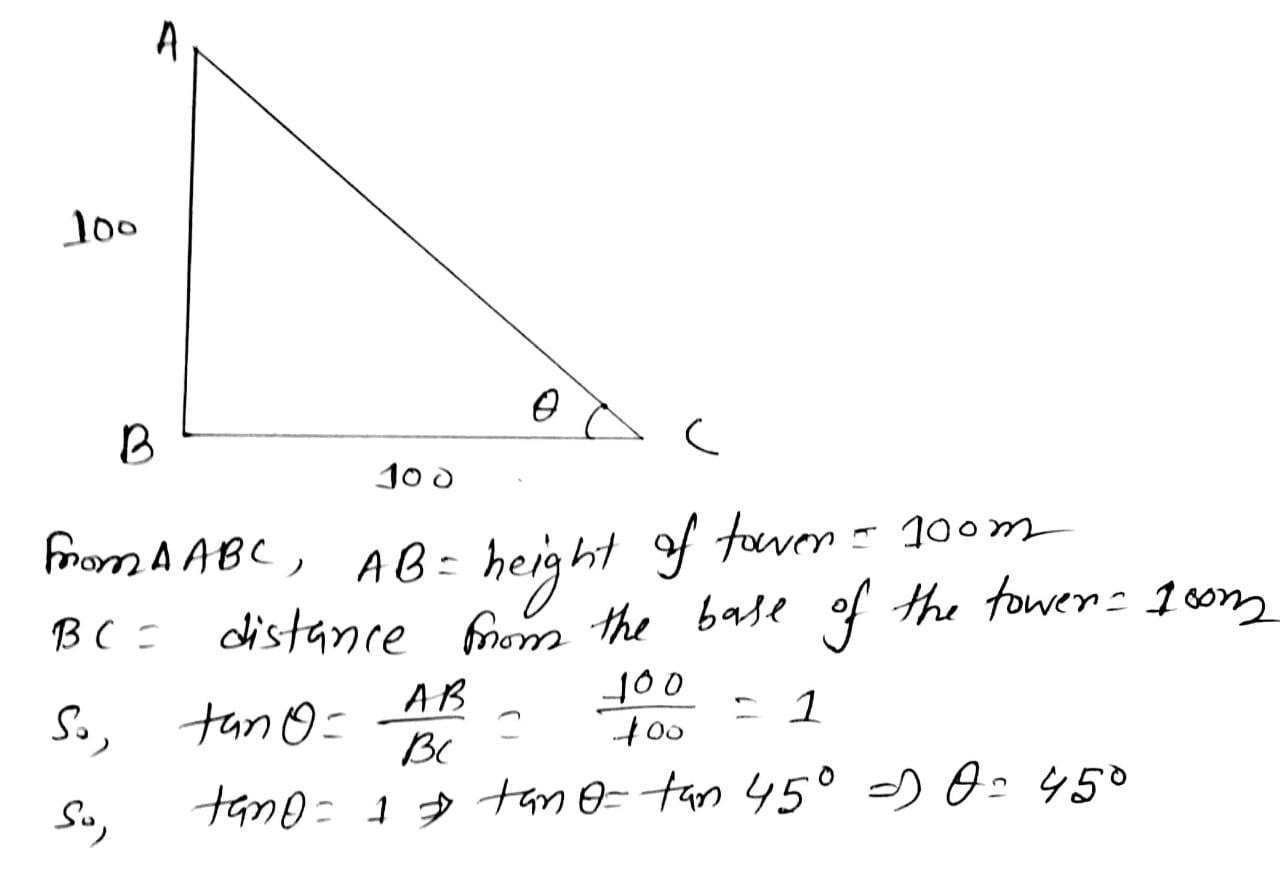 A
100
θ
B
C
100
From Δ ABC, AB = height of tower = 100m
BC = distance from the base of the tower = 100m
So, tanθ = AB/BC = 100/100 = 1
So, tanθ = 1 ⇒ tanθ = tan 45° ⇒ θ = 45°